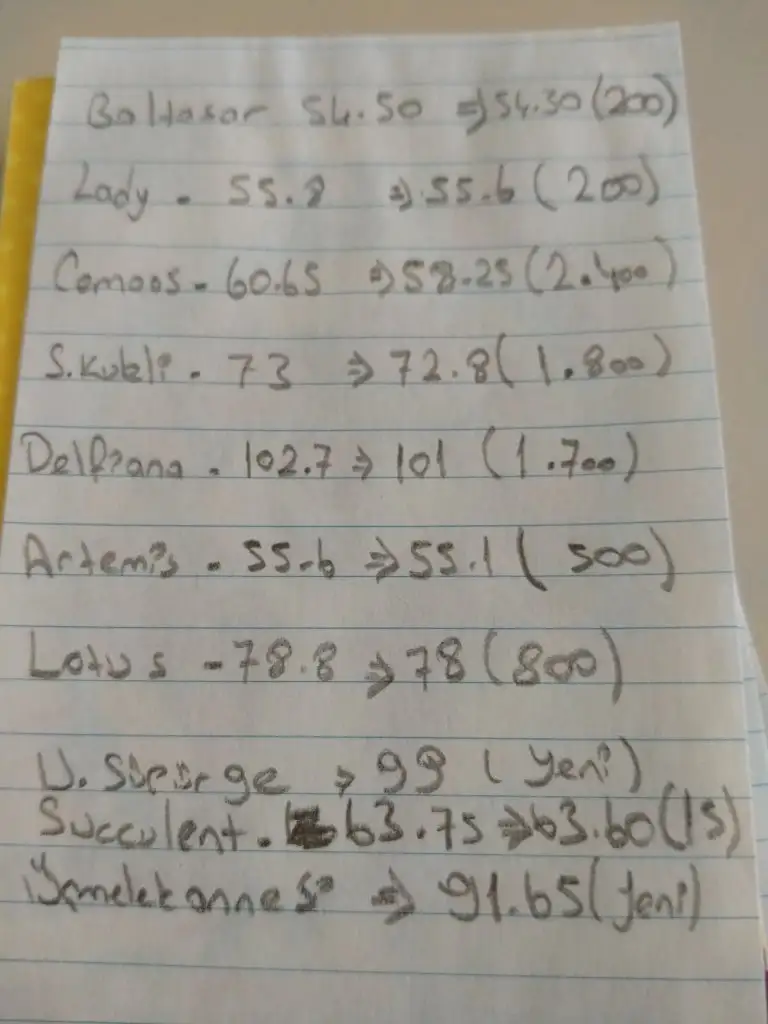 Baltasar 54.50 => 54.30 (200)
Lady - 55.8 => 55.6 (200)
Comoos - 60.65 => 58.25 (2.400)
S. - 73 => 72.8 (1.800)
- 102.7 => 101 (1.700)
Artemis - 55.6 => 55.1 (500)
Lotus - 78.8 => 78 (800)
U. > 99 (yeni)
Succulent - 63.75 => 63.60 (15)
=> 91.65 (yeni)